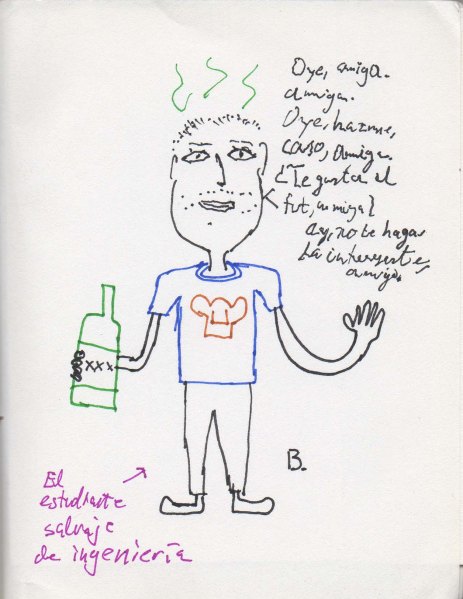 Oye, amiga.
amiga.
Oye, hazme,
caso, amiga.
¿Te gusta el
fut, amiga?
Ay, no te hagas
La interesante,
amiga.
xxx
B.
El
estudiante
salvaje
de ingeniería